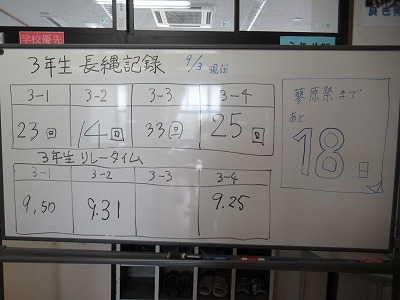 学校優先
3年生 長縄記録 9/3 現在
3-1 3-2 3-3 3-4
23回 14回 33回 25回
3年生リレータイム
3-1 3-2 3-3 3-4
9,50 9.31 9.25
蓼原祭まで
あと
18
日